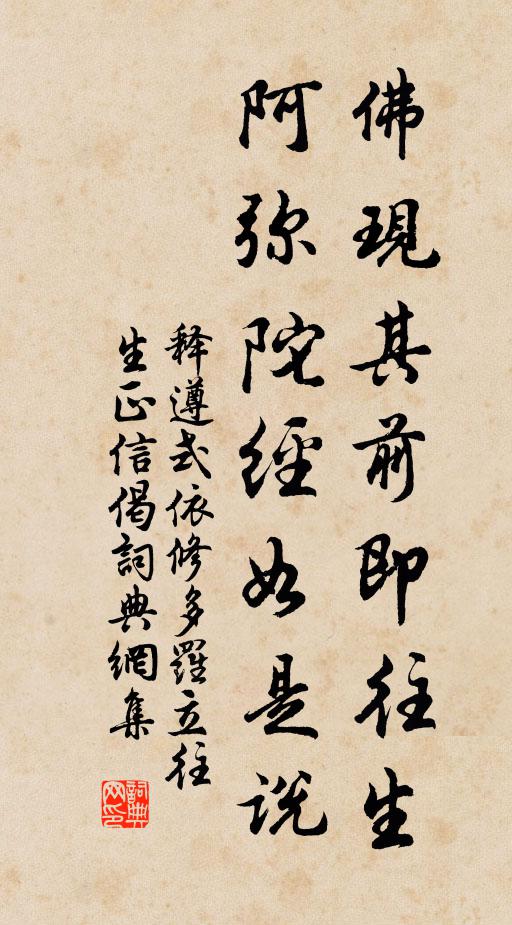 佛現其前即往生
阿弥陀經如是說
释遵式依修多羅立往
生正信偈詞典網集
詞典
网印